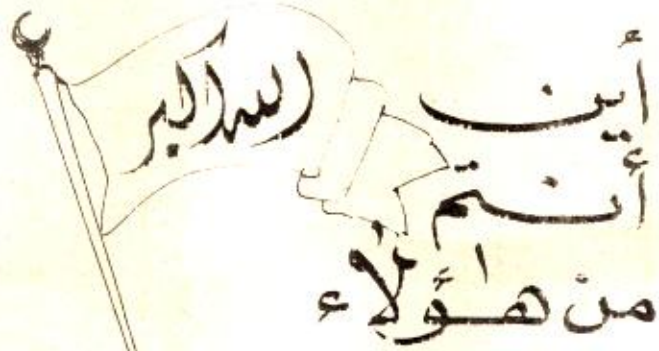 الله أكبر
أين
أنتم
من هؤلاء